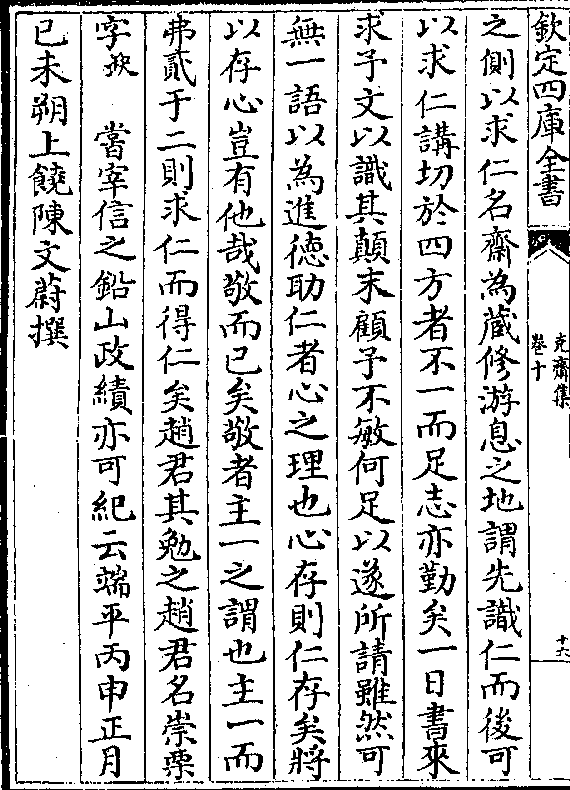 欽定四庫全書
克齋集
卷十
十六
之側以求仁名齋為蔵修游息之地謂先識仁而後可
以求仁講切於四方者不一而足志亦勤矣一日書來
求予文以識其顛末顧予不敏何足以遂所請雖然可
無一語以為進徳助仁者心之理也心存則仁存矣將
以存心豈有他哉敬而已矣敬者主一之謂也主一而
弗貳于二則求仁而得仁矣趙君其勉之趙君名崇栗
字缺 嘗宰信之鉛山政績亦可紀云端平丙申正月
已未朔上饒陳文蔚撰